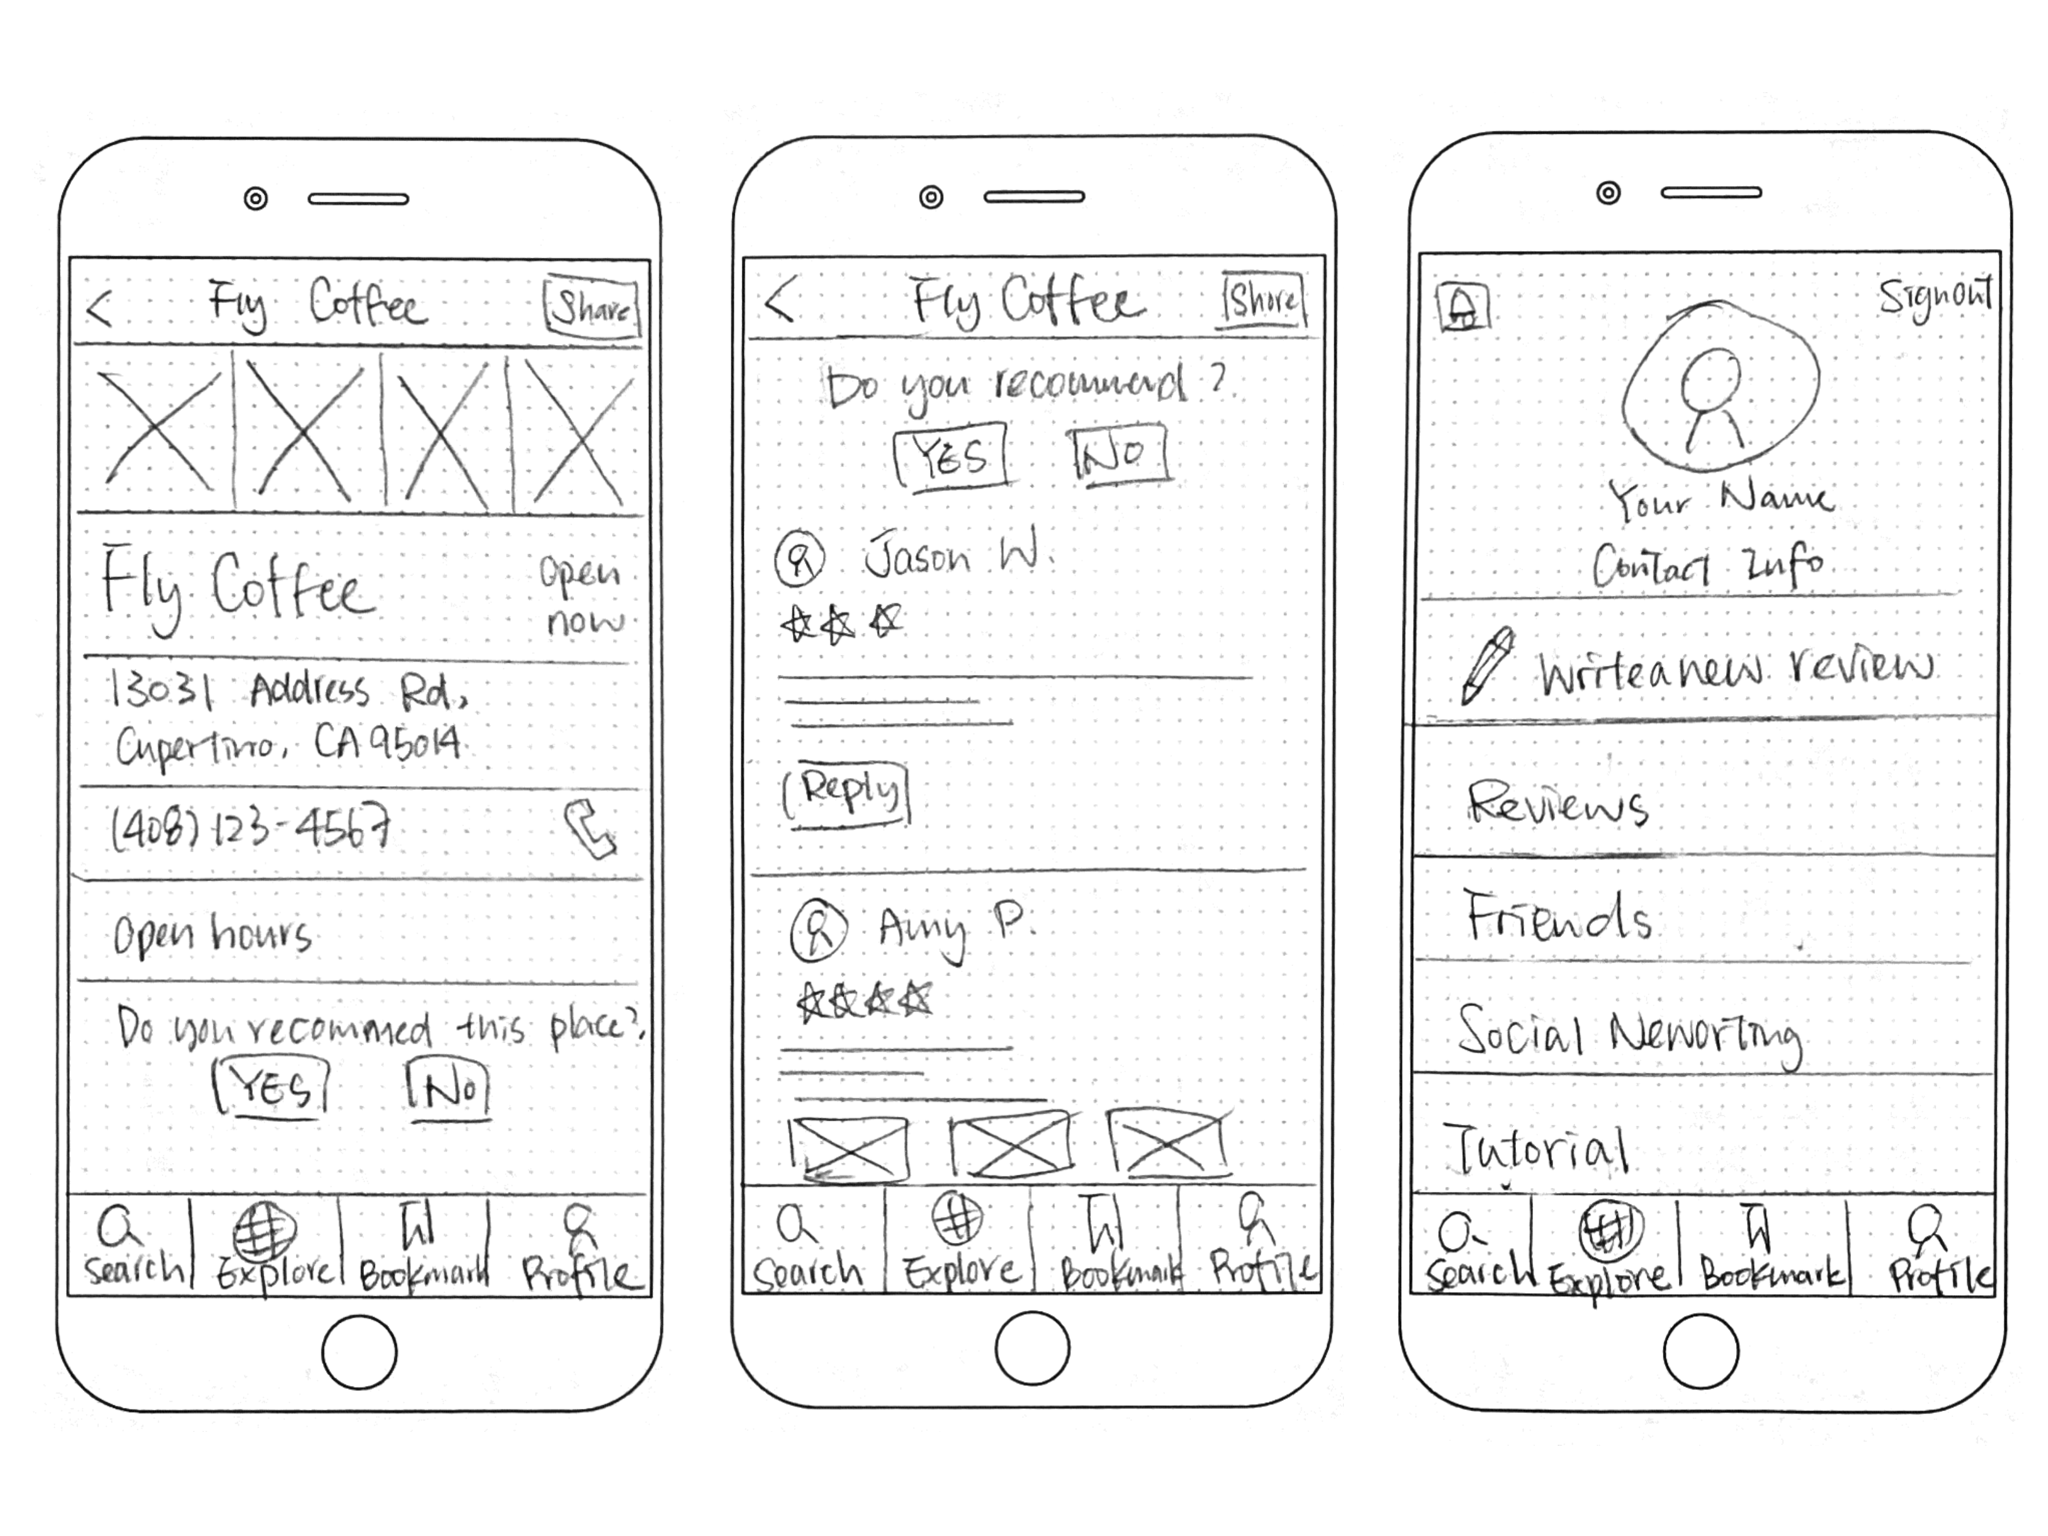 Fly Coffee
Share
Fly Coffee
Open now
13031 Address Rd,
Cupertino, CA 95014
(408) 123-4567
Open hours
Do you recommed this place?
YES
NO
Search
Explore
Bookmark
Profile
Fly Coffee
Share
Do you recommend?
YES
NO
Jason W.
Reply
Amy P.
Search
Explore
Bookmark
Profile
Signout
Your Name
Contact Info
Write a new review
Reviews
Friends
Social Neworting
Tutorial
Search
Explore
Bookmark
Profile